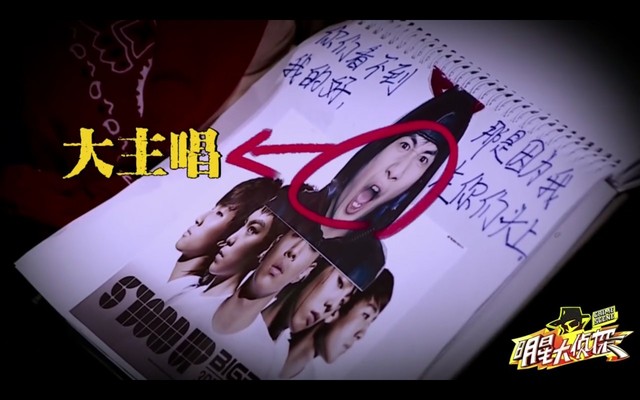 你们看不到
我的好,
那是因为我
在你们头上
大主唱
BIG
CRIME
SCENE
明星大侦探